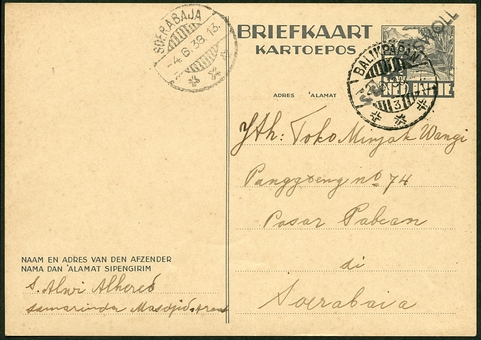 SOERABAJA
-4.6.38.13.
BRIEFKAART
KARTOEPOS
BALIKPAPAN
ADRES 'ALAMAT
Jth: Toko Minjak Wangi
No 74
Pasar Pabean
di
Soerabaia
NAAM EN ADRES VAN DEN AFZENDER
NAMA DAN 'ALAMAT SIPENGIRIM
S. Alwi Alhored
Samarinda Masdjid